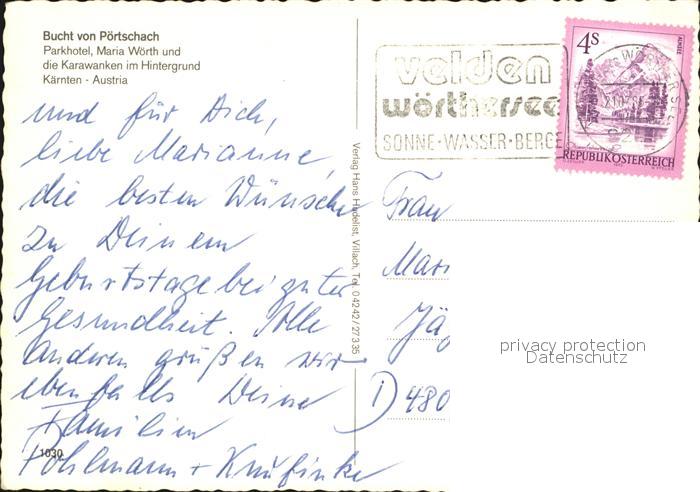 Bucht von Pörtschach
Parkhotel, Maria Wörth und
die Karawanken im Hintergrund
Kärnten - Austria
und für Dich,
liebe Marianne,
die besten Wünsche
zu Deinem
Geburtstage bei guter
Gesundheit. Alle
Anderen grüßen wir
ebenfalls Deine
Familien
Pohlmann + Knufinke
1030
Verlag Hans Hudelist, Villach, Tel. 04242/27335
velden
wörthersee
SONNE·WASSER·BERGE
4S
ALMSEE
REPUBLIK ÖSTERREICH
Frau
Mari
Jäg
D 480
privacy protection
Datenschutz